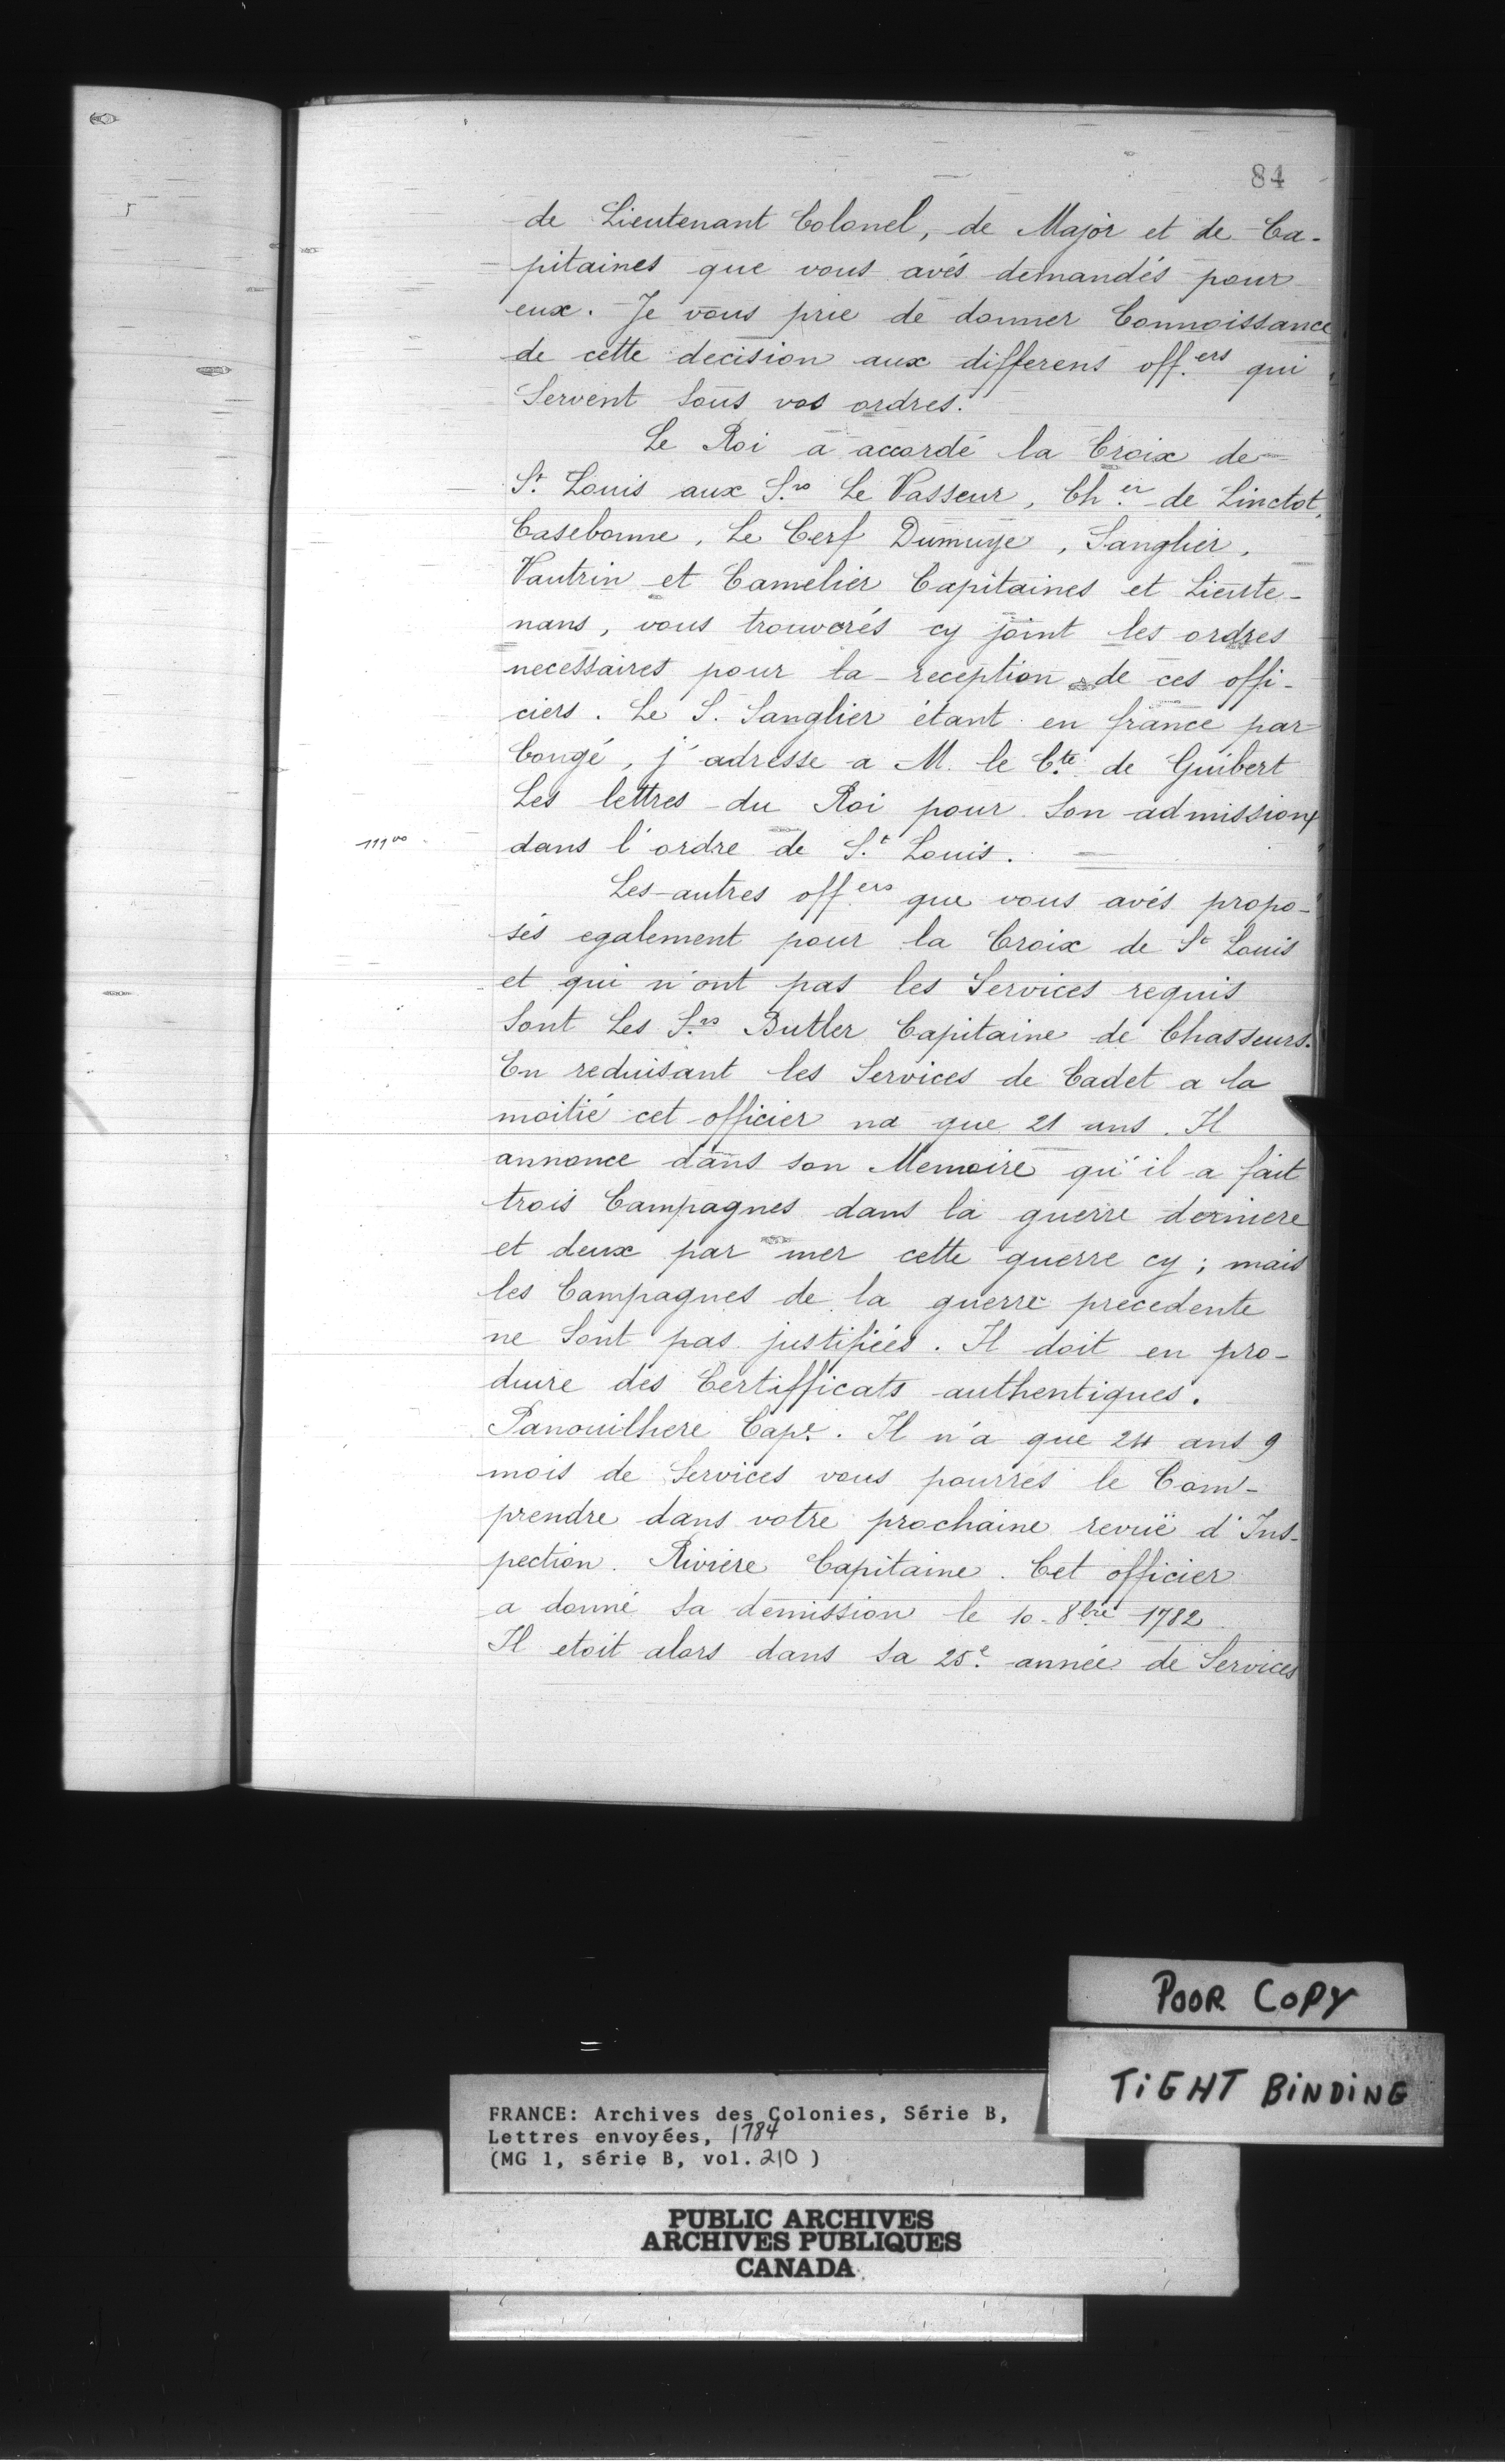 84
de Lieutenant Colonel, de Major et de Ca-
pitaines que vous avés demandés pour
eux. Je vous prie de donner Connoissance
de cette decision aux differens off.ers qui
Servent sous vos ordres.
Le Roi a accordé la Croix de
St. Louis aux S.rs Le Vasseur, Ch.er de Linctot,
Casebonne, Le Cerf Dumuye, Sanglier,
Vautrin et Camelier Capitaines et Lieute-
nans, vous trouverés cy joint les ordres
necessaires pour la reception de ces offi-
ciers. Le S. Sanglier étant en france par
Congé, j'adresse a M. le C.te de Guibert
Les lettres du Roi pour son admission
dans l'ordre de S.t Louis.
111 vo
Les autres off.ers que vous avés propo-
sés egalement pour la Croix de St Louis
et qui n'ont pas les Services requis
sont Les S.rs Butler Capitaine de Chasseurs.
En reduisant les Services de Cadet a la
moitié cet officier na que 21 ans. Il
annonce dans son Memoire qu'il a fait
trois Campagnes dans la guerre derniere
et deux par mer cette guerre cy; mais
les Campagnes de la guerre precedente
ne sont pas justifiées. Il doit en pro-
duire des Certifficats authentiques.
Panouilhere Cap.e. Il n'a que 24 ans 9
mois de Services vous pourrés le Com-
prendre dans votre prochaine revuë d'Ins-
pection. Riviere Capitaine. Cet officier
a donné sa demission le 10 8bre 1782
Il etoit alors dans sa 25.e année de Services
POOR COPY
TiGHT BiNDiNG
FRANCE: Archives des Colonies, Série B,
Lettres envoyées, 1784
(MG 1, série B, vol. 210 )
PUBLIC ARCHIVES
ARCHIVES PUBLIQUES
CANADA